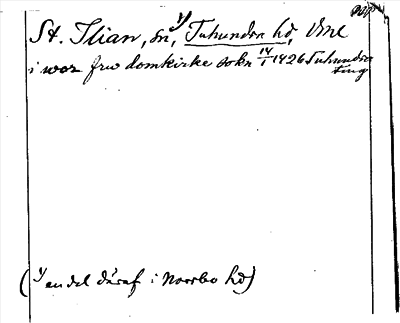 St. Ilian, sn, 1) Tuhundra hd, Vml
i wor frw domkirke sokn 14/1 1426 Tuhundra
ting
(1) en del däraf i Norrbo hd)